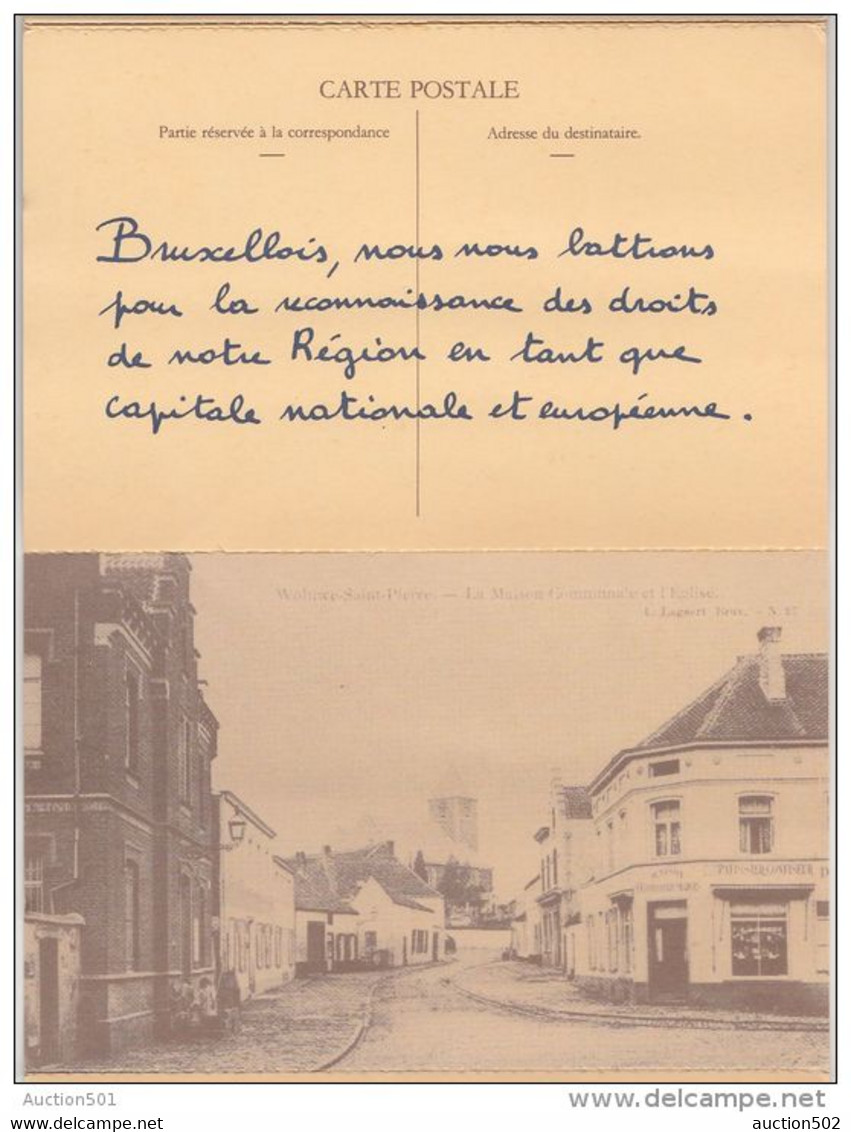 CARTE POSTALE
Partie réservée à la correspondance
Adresse du destinataire.
Bruxellois, nous nous battrons
pour la reconnaissance des droits
de notre Région en tant que
capitale nationale et européenne.
Woluwe-Saint-Pierre. — La Maison Communale et l'Eglise.
L. Lagaert, Brux. - N. 27
Auction501
www.delcampe.net
auction502